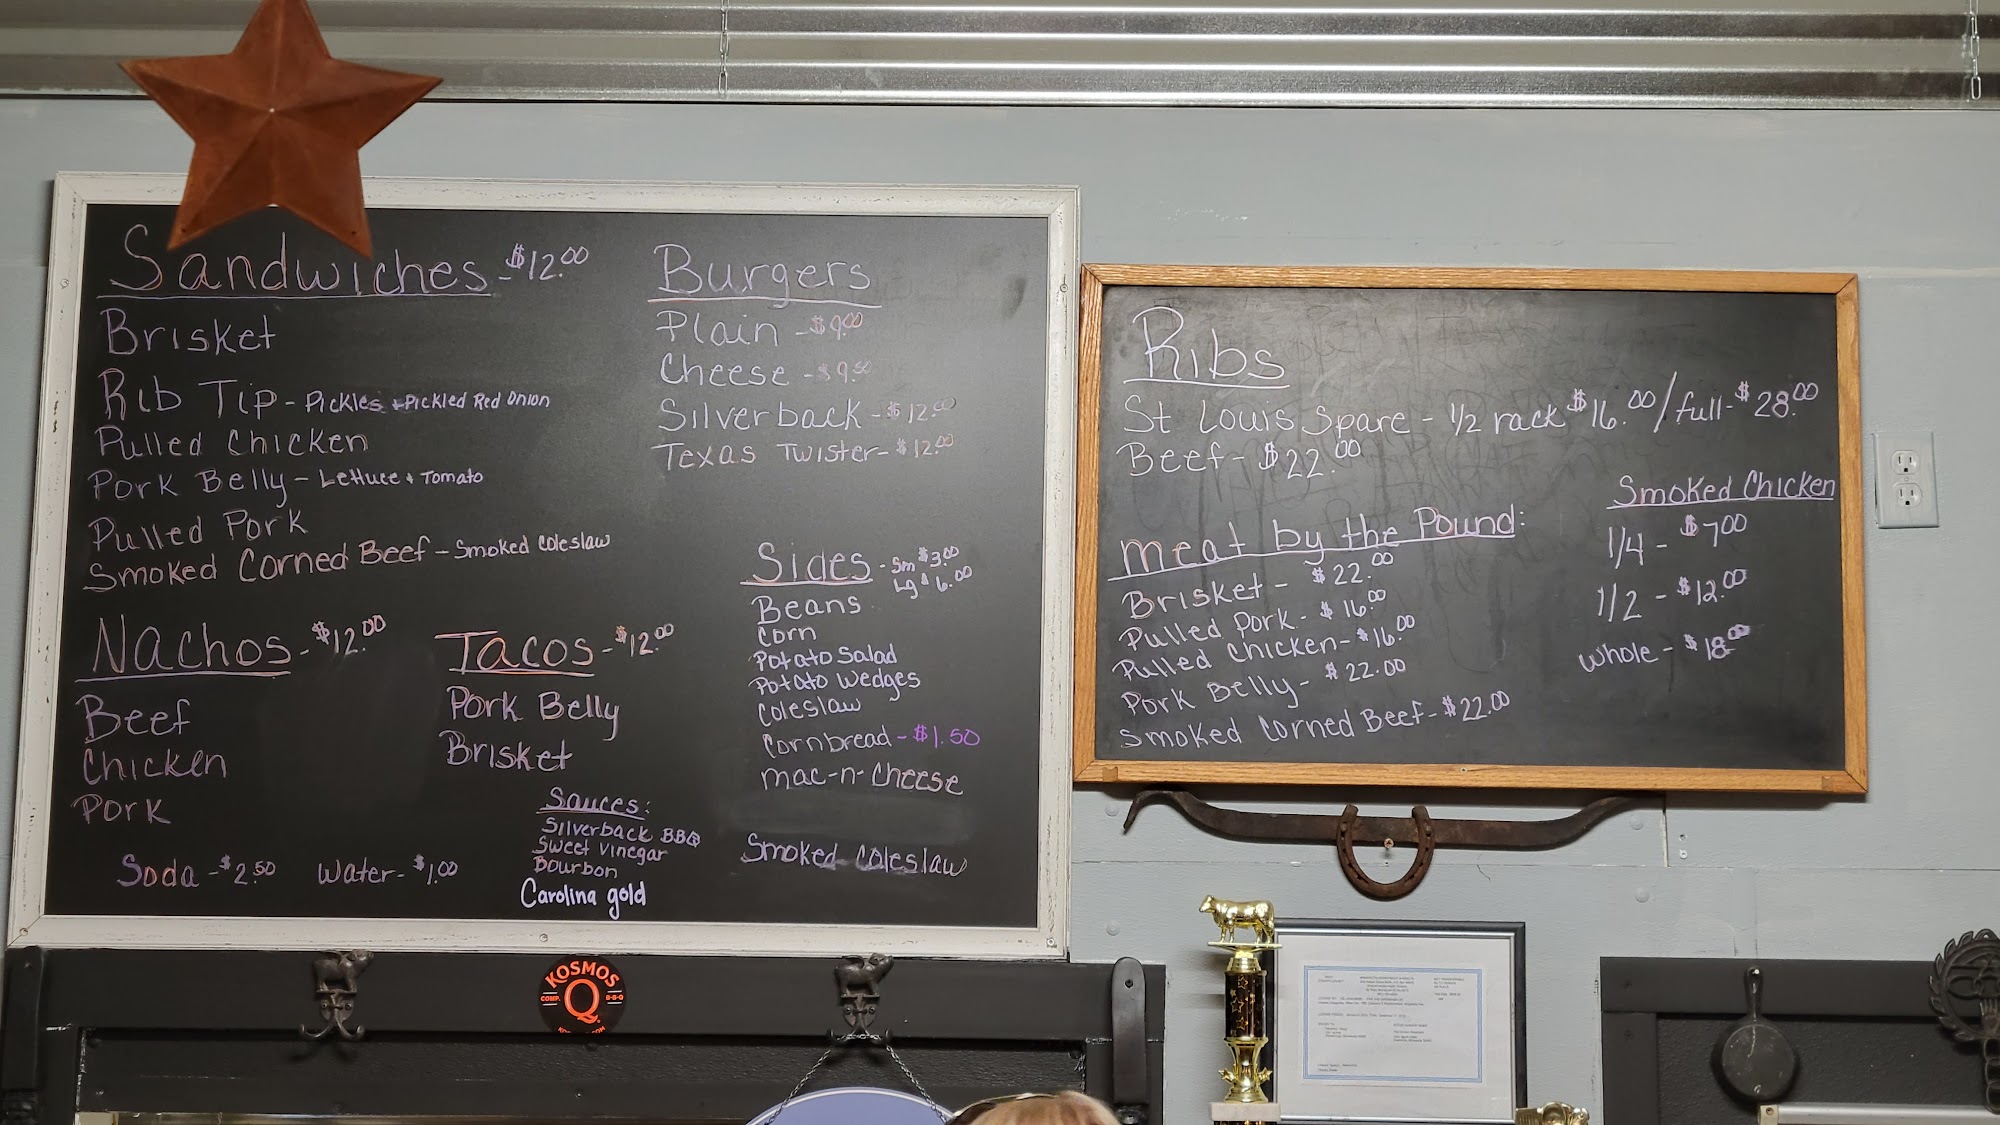 Sandwiches - $12.00
Brisket
Rib Tip - Pickles + Pickled Red Onion
Pulled Chicken
Pork Belly - Lettuce + Tomato
Pulled Pork
Smoked Corned Beef - Smoked Coleslaw
Burgers
Plain - $9.00
Cheese - $9.50
Silverback - $12.00
Texas Twister - $12.00
Nachos - $12.00
Beef
Chicken
Pork
Tacos - $12.00
Pork Belly
Brisket
Sides - Sm $3.00
Lg $6.00
Beans
Corn
Potato Salad
Potato Wedges
Coleslaw
Cornbread - $1.50
Mac-n-Cheese
Smoked Coleslaw
Sauces:
Silverback BBQ
Sweet Vinegar
Bourbon
Carolina gold
Soda - $2.50
Water - $1.00
Ribs
St Louis Spare - 1/2 rack $16.00/full - $28.00
Beef - $22.00
Meat by the Pound:
Brisket - $22.00
Pulled Pork - $16.00
Pulled Chicken - $16.00
Pork Belly - $22.00
Smoked Corned Beef - $22.00
Smoked Chicken
1/4 - $7.00
1/2 - $12.00
whole - $18.00
KOSMOS
COMP. Q B-B-Q